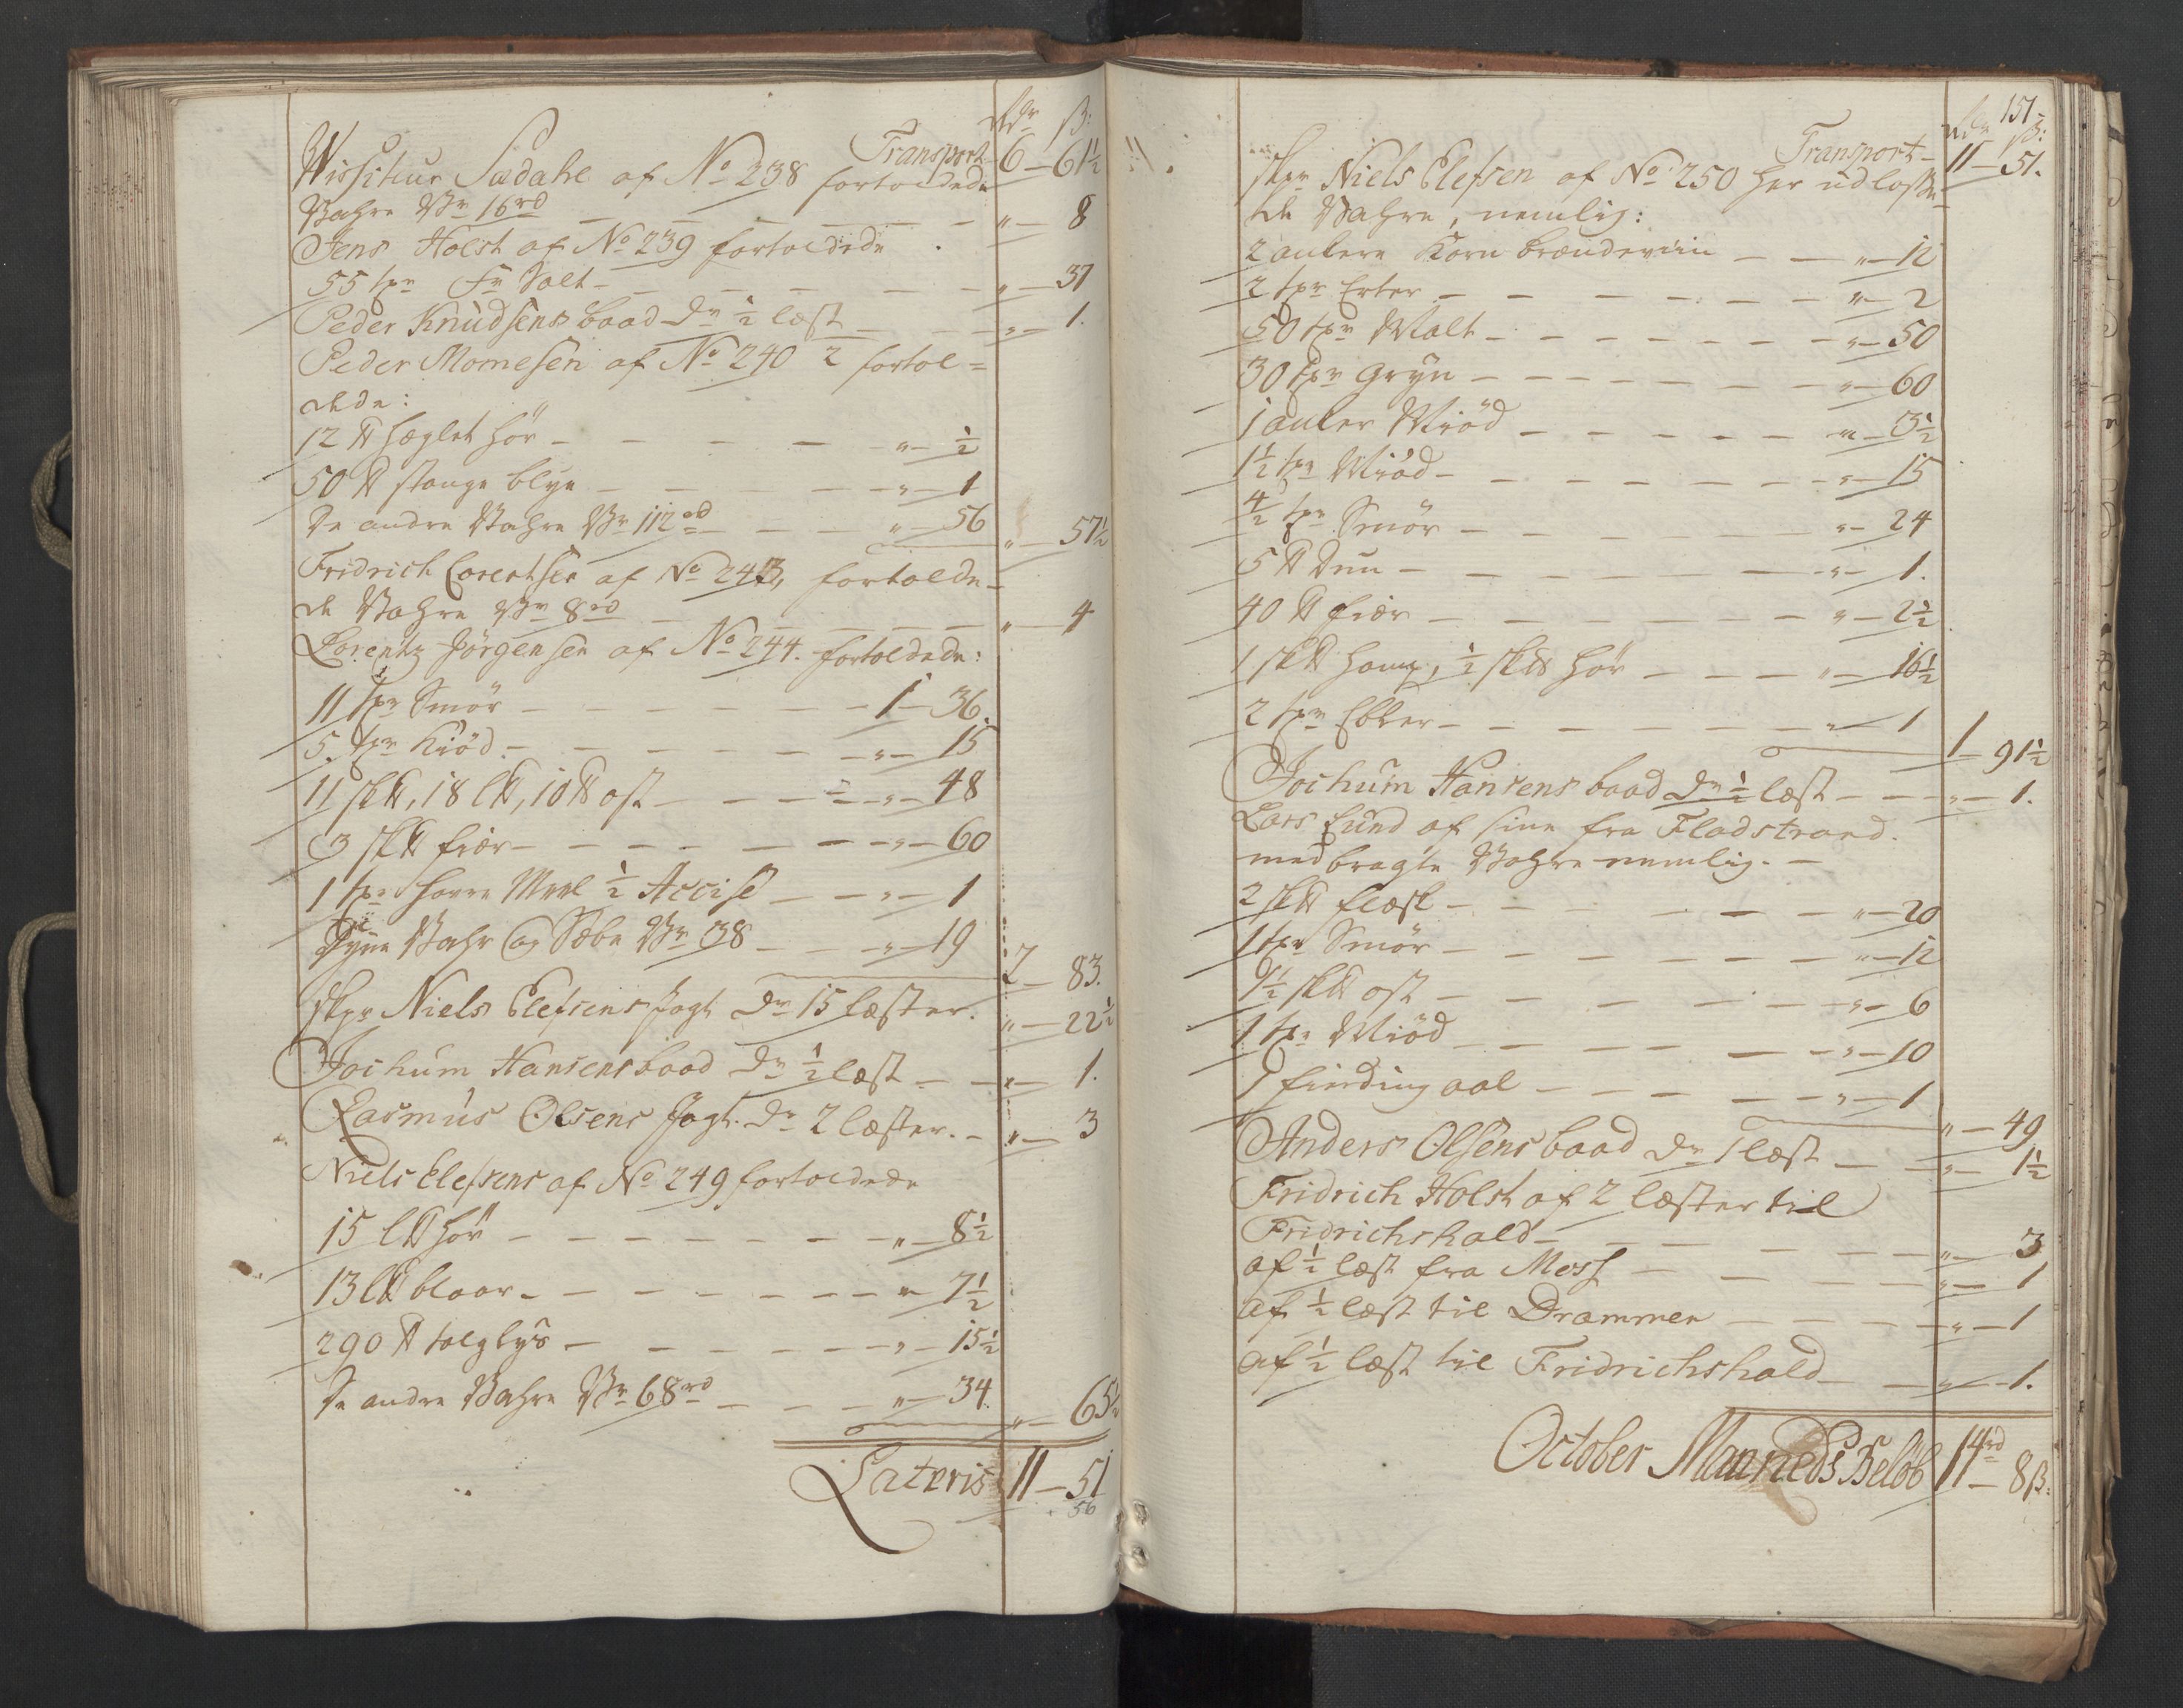 Rdr ß:
Transport 6 — 61½
Wissiteur Sudahl af No 238 fortoldede
Wahre Vr 16rd — „ — 8
Jens Holst af No 239 fortoldede
55 tnr Fr Salt — „ — 37
Peder Knudsens baad Dr ½ læst — „ — 1.
Peder Momesen af No 240 2 fortol=
dede:
12 ℔ heglet hör — „ — ½
50 ℔ stange blye — „ — 1
De andre Wahre Vr 112rd — „ — 56 „ — 57½
Fridrich Lorentsen af No 243, fortolde-
de Wahre Vr 8rd — „ — 4
Lorentz Jörgensen af No 244. fortoldede:
11 tnr Smör — 1 — 36.
5. tnr Kiöd — „ — 15
11 sk℔, 18 l℔, 10 ℔ ost — „ — 48
3 sk℔ fiær — „ — 60
1 tnr havre Meel ½ Accise — „ — 1
Wahr og Sæbe Vr 38 — „ — 19 2 — 83.
skpr Niels Elefsens Jagt Dr 15 læster. „ — 22½
Jochum Hansens baad Dr ½ læst — „ — 1.
Rasmus Olsens Jagt. Dr 2 læster. — „ — 3
Niels Elefsens af No 249 fortoldede
15 l℔ hör — „ — 8½
13 l℔ blaar — „ — 7½
290 ℔ talglys — „ — 15½
De andre Wahre Vr 68rd — „ — 34. „ — 65½
Lateris 11 — 51
56
151
Rdr ß:
Transport — 11 — 51.
skpr Niels Elefsen af No 250 her udlosse-
de Wahre, nemlig:
2 ankere Korn brændeviin — „ — 12
2 tnr Erter — „ — 2
50 tnr Malt — „ — 50
30 tnr Gryn — „ — 60
1 anker Miöd — „ — 3½
1½ tnr Miöd — „ — 15
4/2 tnr Smör — „ — 24
5 ℔ Duun — „ — 1.
40 ℔ fiær — „ — 2½
1 sk℔ hamp, ½ sk℔ hör — „ — 16½
2 tnr Ebler — „ — 1 1 — 91½
Jochum Hansens baad Dr ½ læst — „ — 1.
Lars Lund af sine fra Fladstrand.
medbragte Wahre nemlig. —
2 sk℔ flæsk — „ — 20
1 tnr Smör — „ — 12
1½ sk℔ ost — „ — 6
1 tnr Miöd — „ — 10
1 fierding aal — „ — 1
„ — 49
Anders Olsens baad Dr 1 læst — „ — 1½
Fridrich Holst af 2 læster til
Fridrichshald — „ — 3
af ½ læst fra Moss — „ — 1
af ½ læst til Drammen — „ — 1
af ½ læst til Fridrichshald — „ — 1.
October Maaneds Beløb 14rd — 8ß.